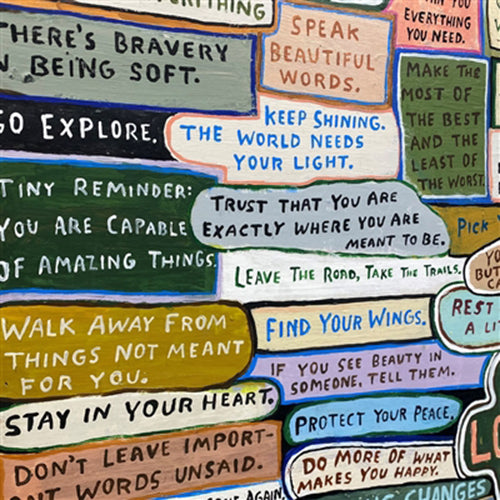 EVERYTHING
YOU NEED.
THERE'S BRAVERY
BEING SOFT.
SPEAK
BEAUTIFUL
WORDS.
MAKE THE
MOST OF
THE BEST
AND THE
LEAST OF
THE WORST.
GO EXPLORE.
KEEP SHINING.
THE WORLD NEEDS
YOUR LIGHT.
TINY REMINDER:
YOU ARE CAPABLE
OF AMAZING THINGS.
TRUST THAT YOU ARE
EXACTLY WHERE YOU ARE
MEANT TO BE.
PICK
LEAVE THE ROAD, TAKE THE TRAILS.
BUT
WALK AWAY FROM
THINGS NOT MEANT
FOR YOU.
FIND YOUR WINGS.
REST
IF YOU SEE BEAUTY IN
SOMEONE, TELL THEM.
STAY IN YOUR HEART.
PROTECT YOUR PEACE.
DON'T LEAVE IMPORT-
ANT WORDS UNSAID.
DO MORE OF WHAT
MAKES YOU HAPPY.
AGAIN,
CHANGES